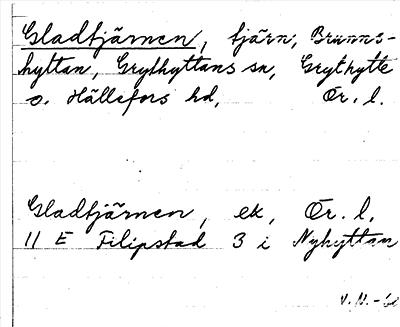 Gladtjärnen, tjärn, Brunns-
hyttan, Grythyttans sn, Grythytte
o. Hällefors hd, Ör. l.
Gladtjärnen, ek, Ör. l.
11 E Filipstad 3 i Nyhyttan
V.N.-60